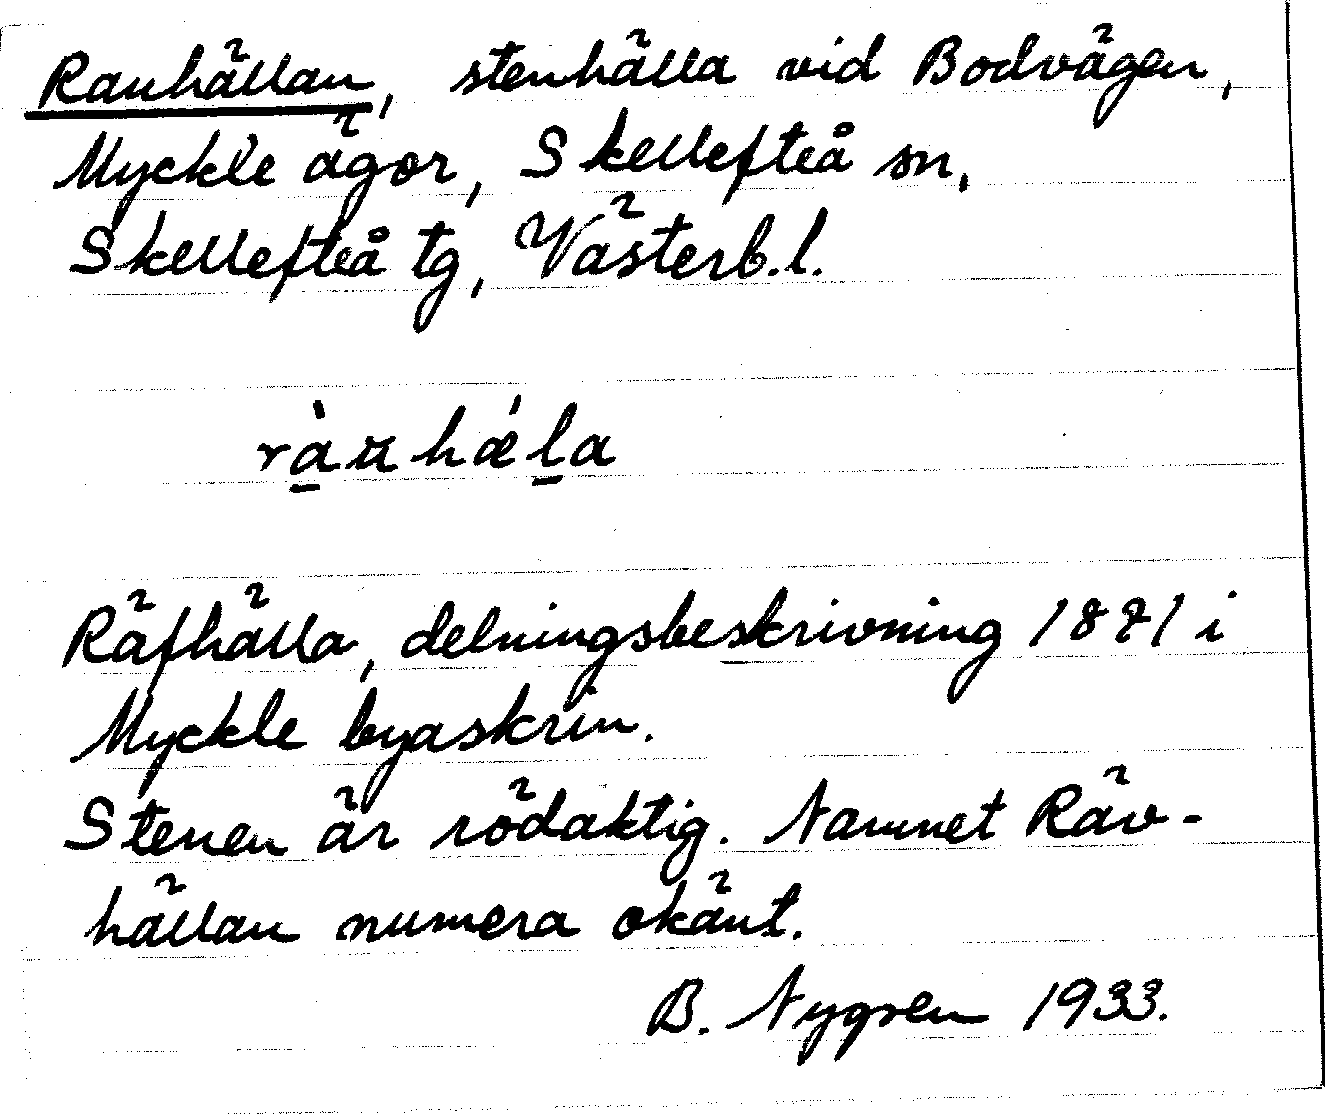 Rauhällan, stenhälla vid Bodvägen,
Myckle ägor, Skellefteå sn,
Skellefteå tg, Västerb.l.
Räfhälla, delningsbeskrivning 1871 i
Myckle byaskrin.
Stenen är rödaktig. Namnet Räv-
hällan numera okänt.
B. Nygren 1933.